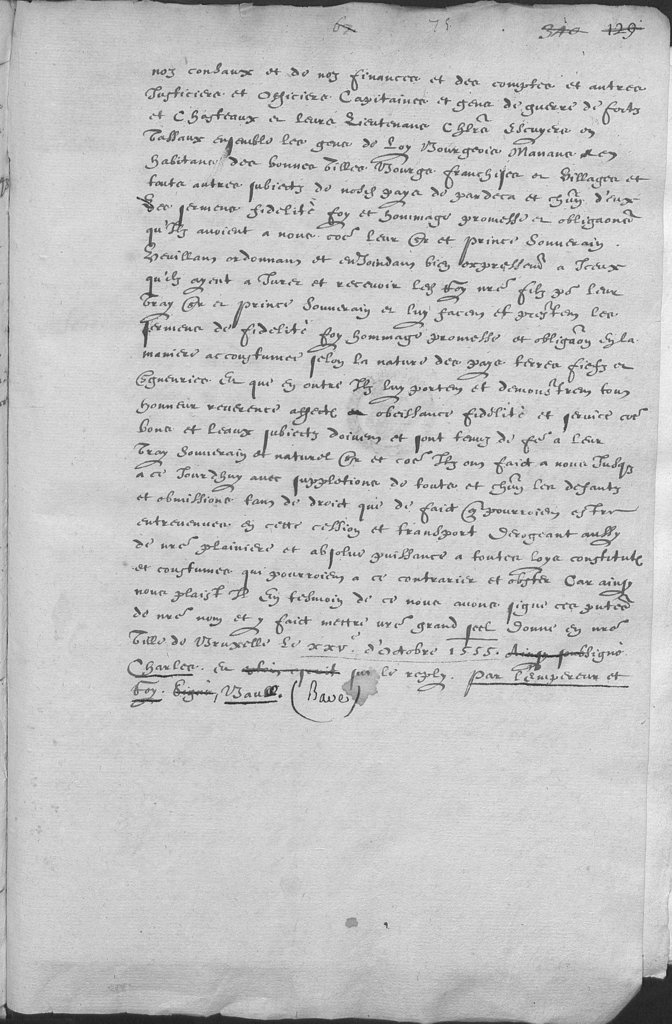 67 75 340 129
noz consaux et de noz finances et des comptes et autres
Justiciers et Officiers Capitaines et gens de guerre de fortz
et Chasteaux et leurs Lieutenans Chlrs Escuyers en
Vassaux ensemble les gens de Loy Bourgeois Manans et
habitans des bonnes Villes Bourgs franchises et Villages et
toute autres subiectz de nosd. pays de pardeca et chun d'eux
des sermens fidelité foy et hommage promesse et obligaons
qu'Ilz avoient a nous coe leur Sr et Prince Souverain.
Veuillans ordonnans et enJoindans bien expressemt a Iceux
qu'ilz ayent a Jurer et recevoir led. Roy nre filz po leur
Vray Sr et Prince Souverain et luy facent et prestent les
sermens de fidelité foy hommage promesse et obligaon en la
maniere accoustumee selon la nature des pays terres fiefz et
Sgneuries Et que en outre Ilz luy portent et demonstrent tout
honneur reverence affecti obeissance fidelité et service coe
bons et leaux subiectz doivent et sont tenuz de fe a leur
Vray Souverain et naturel Sr et coe Ilz ont faict a nous Jusqs
a ce Jourdhuy avec suppletions de toute et chun les defautz
et obmissions tant de droict que de faict q pourroient estre
entrevenues en cette cession et transport Derogeant aussy
de nre plainiere et absolue puissance a toutes loys constitutz
et coustumes qui pourroient a ce contrarier et obster Car ainsy
nous plaist Il En tesmoin de ce nous avons signe ces pntes
de nre nom et y faict mettre nre grand seel Donne en nre
Ville de Bruxelle Le xxv.e d'Octobre 1555. Ainsy signé
Charles. Et sur le reply. Par l'Empereur et
Roy. Signé, Bave. (Bave)